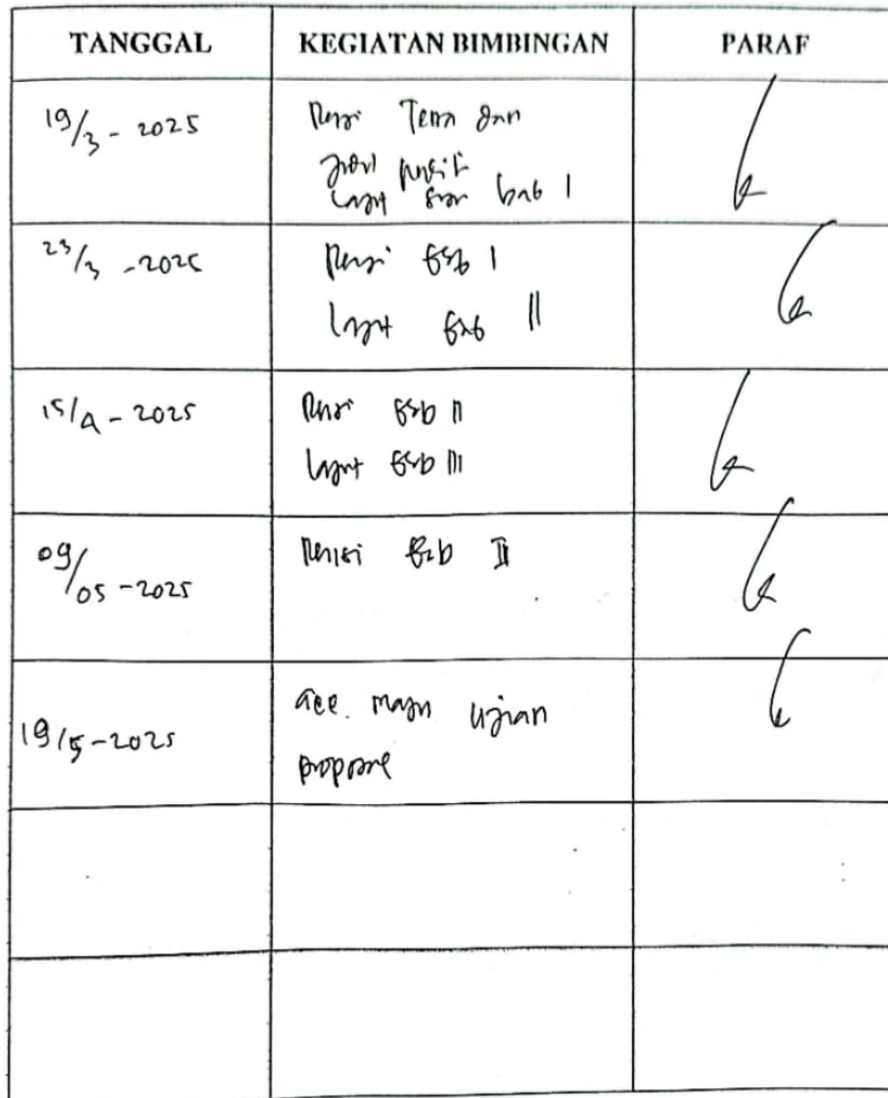 TANGGAL KEGIATAN BIMBINGAN PARAF
19/3 - 2025 Revisi Tema dan
bab I
23/3 - 2025 Revisi Bab I
Lanjut Bab II
15/4 - 2025 Revisi Bab II
Lanjut Bab III
09/05 - 2025 Revisi Bab II
19/5 - 2025 acc. maju ujian
proposal